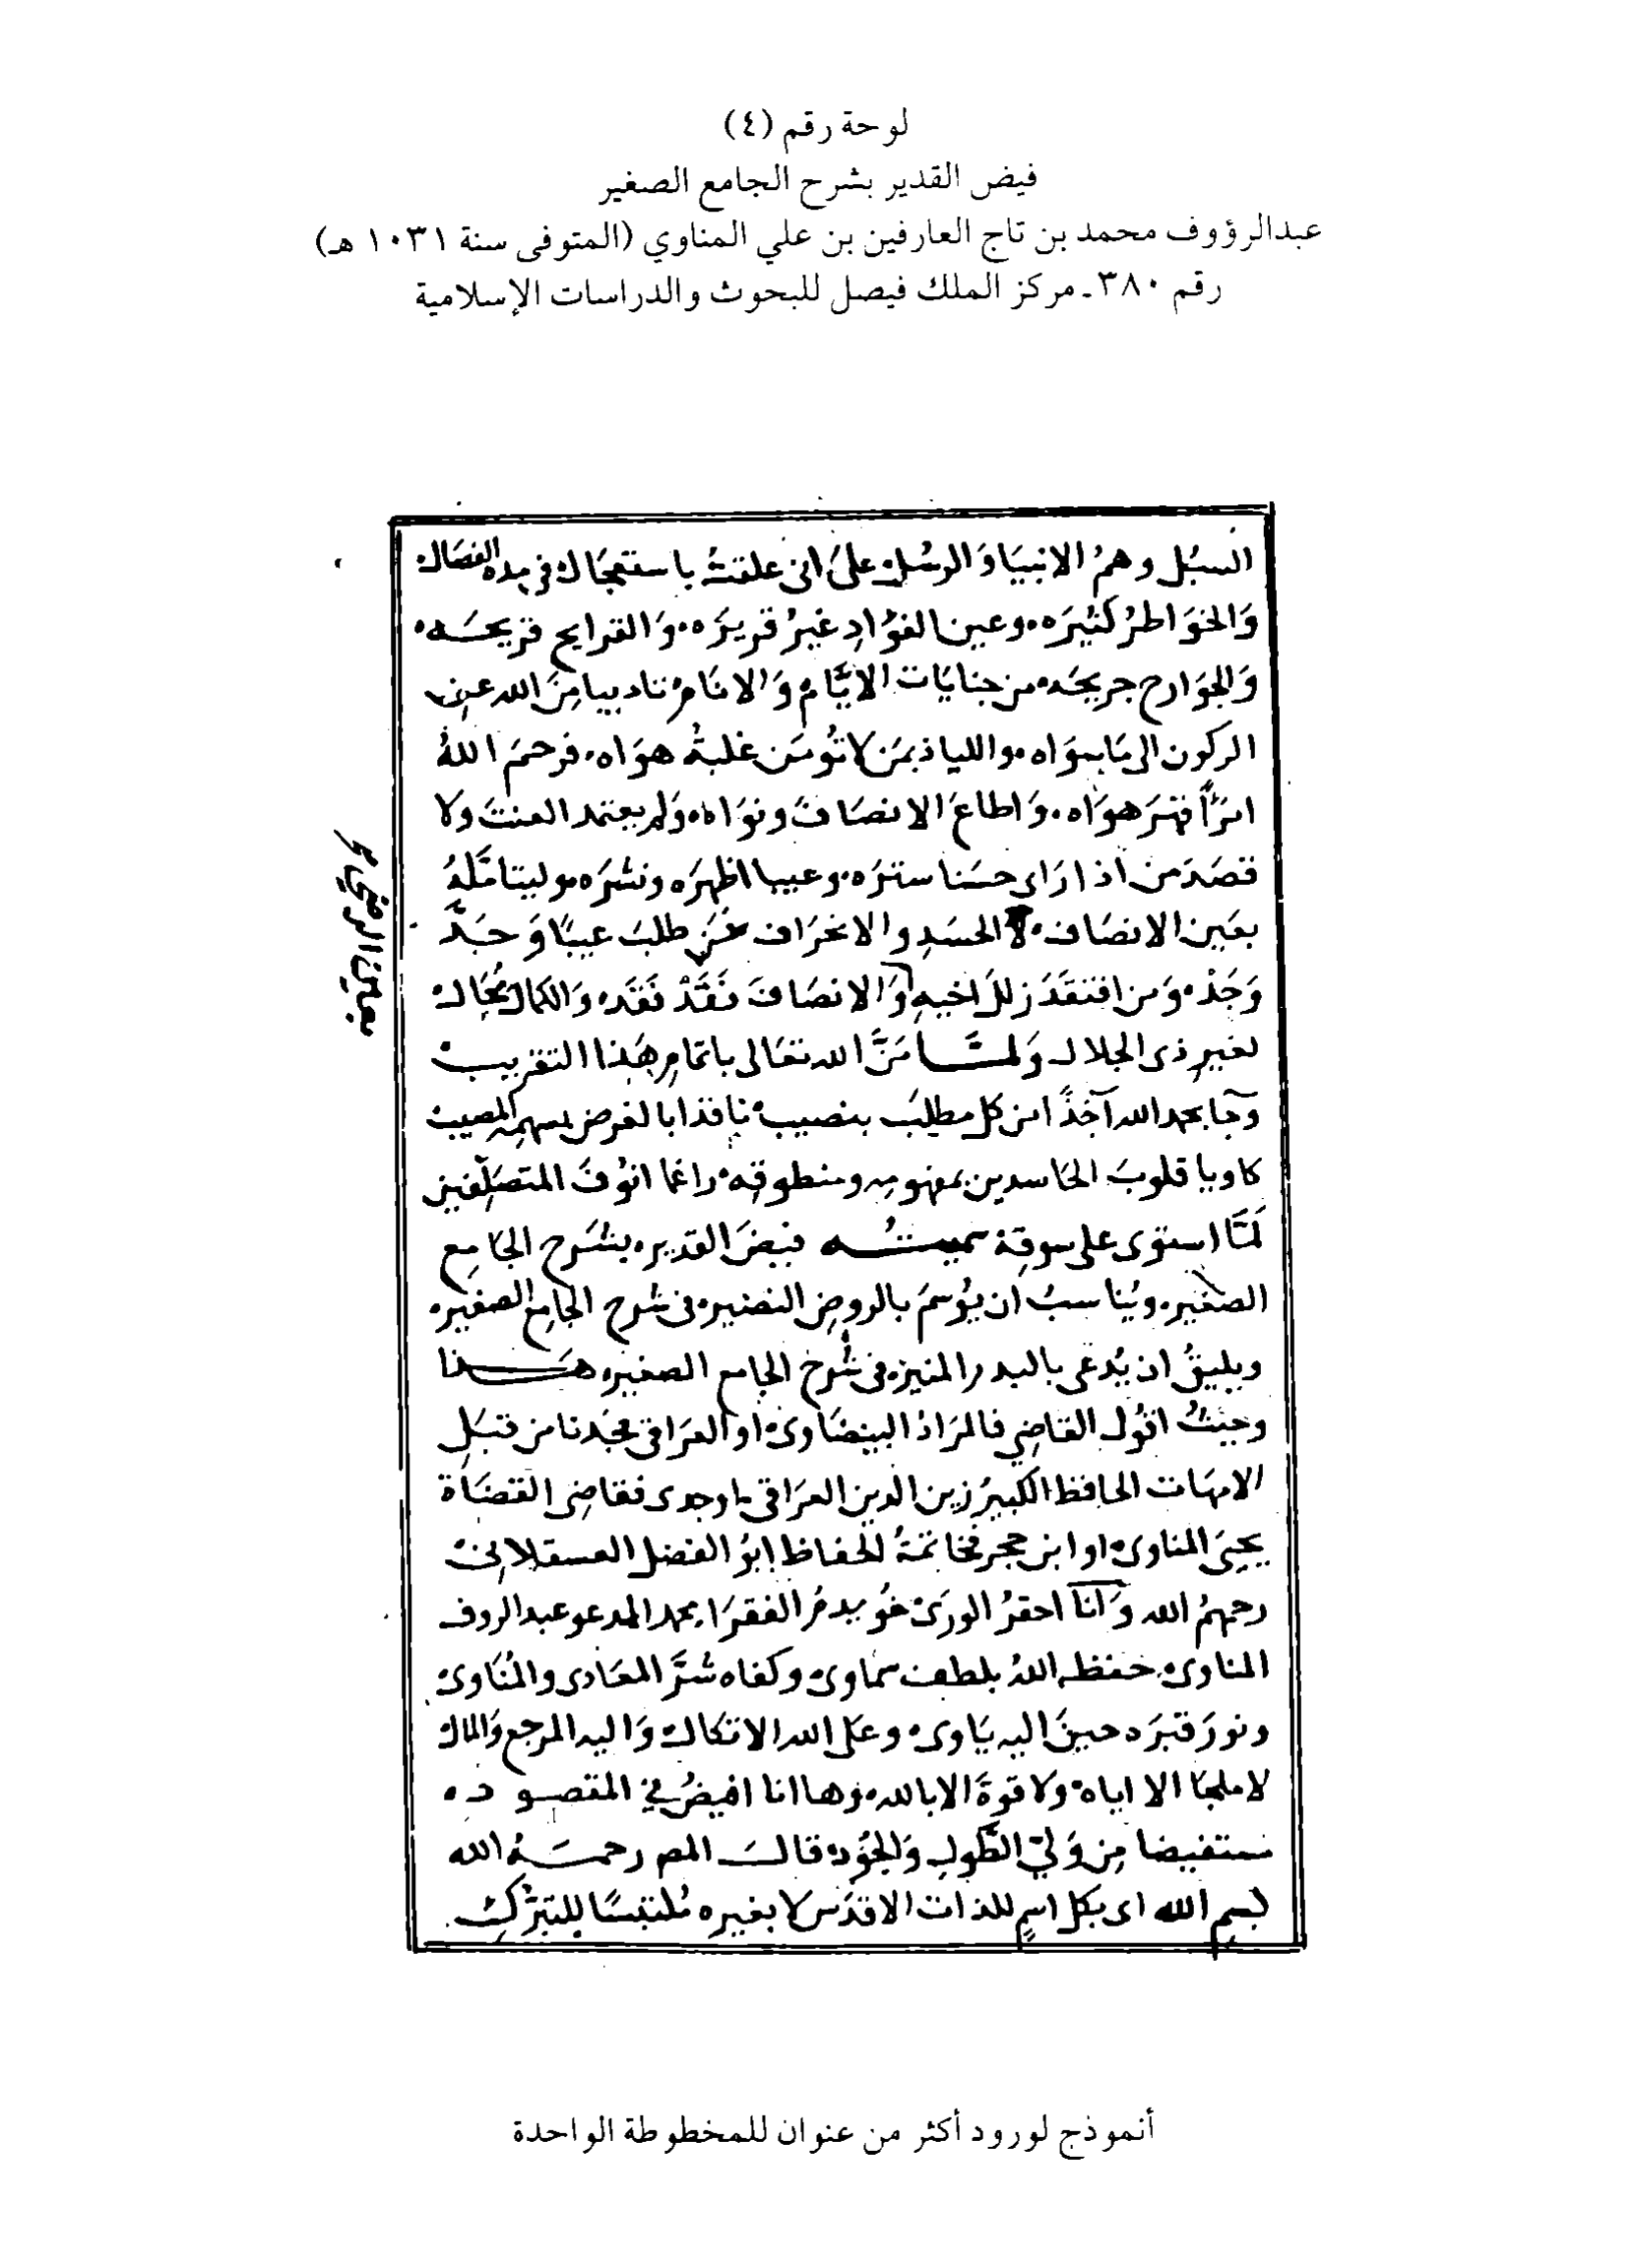 لوحة رقم (٤)
فيض القدير بشرح الجامع الصغير
عبدالرؤوف محمد بن تاج العارفين بن علي المناوي (المتوفى سنة ١٠٣١ هـ)
رقم ٣٨٠ ـ مركز الملك فيصل للبحوث والدراسات الإسلامية
السبُل وهمُ الانبيَا وَ الرسُل علىَ انى علقتُ باستعجَال فى مدة الفصَال
وَالخوَاطرُ كثيرَه وعين الفؤادِ غيرُ قريرَه وَالقرايح قريحَه
وَالجوَارح جريحَه من جنايَات الايَّام وَالانَام تاديبا مِنَ الله عن
الركون الى مَا سِوَاه واللياذ بمَن لا تُومَن غلبةُ هوَاه فرحمَ اللهُ
امرَأً قهرَ هوَاه وَاطاعَ الانصَافَ ونوَاه وَلم يعتمد العنتَ ولا
قصَدَ من اذا رَاى حسَنا ستَرَه وعيبا اظهرَه ونشرَه وليتامَّلهُ
بعَين الانصَاف لا الحسَدِ والانحرَاف فمَن طلبَ عيبًا وَجدَّ
وَجَدْ وَمن افتقدَ زللَ اخيه وَالانصَافَ فَقَدْ فَقَد وَالكمال مُحَال
لغيرِ ذى الجلال وَلمَّا مَنَّ الله تعَالى باتمامِ هَذا التقريب
وجَا بحمد الله آخذًا من كل مطلبَ بنصيب نافذا بالغرض بسهمِه المصيب
كاويا قلوبَ الحَاسدين بمفهومِه ومنطوقِه راغما انوُفَ المتصَلِّفين
لمَّا استوى على سوقِه سميتُه فيضَ القدير بشَرح الجَامع
الصغير ويُناسبُ ان يُوسمَ بالروضِ النضير فى شرح الجامِع الصغير
ويليقُ ان يُدعَى بالبدر المنير فى شرح الجامع الصغير هَذا
وحيثُ اقُول القاضِى فالمرَادُ البيضَاوى او العرَاقى فجَدنا من قبَلِ
الامهَات الحافظ الكبيرُ زين الدين العرَاقى او جدى فقاضِى القضَاة
يحيىَ المناوى او ابن حجر فخاتمةُ الحفاظ ابوُ الفضل العسقلانى
رحمهمُ الله وَانا احقرُ الورَى خوُيدمُ الفقرَا محمد المدعو عبد الروف
المناوى حفظه اللهُ بلطف سماوى وكفاه شرَّ المعَادى والمُنَاوى
ونورَ قبرَه حينَ اليه يَاوى وعلى الله الاتكال وَاليه المرجع وَالمال
لا ملجَا الا اياه ولا قوةَ الا بالله وها انا افيضُ في المقصود
مستفيضا مِن وَليّ الطَّول وَالجُود قالَ المص رحمَهُ الله
بسمِ الله اى بكل اسمٍ للذات الاقدَس لا بغيره مُلتبسًا للتبرُّك
بعين الرضى
أنموذج لورود أكثر من عنوان للمخطوطة الواحدة